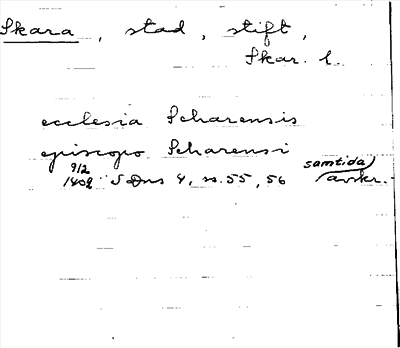 Skara, stad, stift,
Skar. l.
ecclesia Scharensis
episcopo Scharensi
9/2 samtida
1402 SDns 4, ss. 55, 56 avskr.